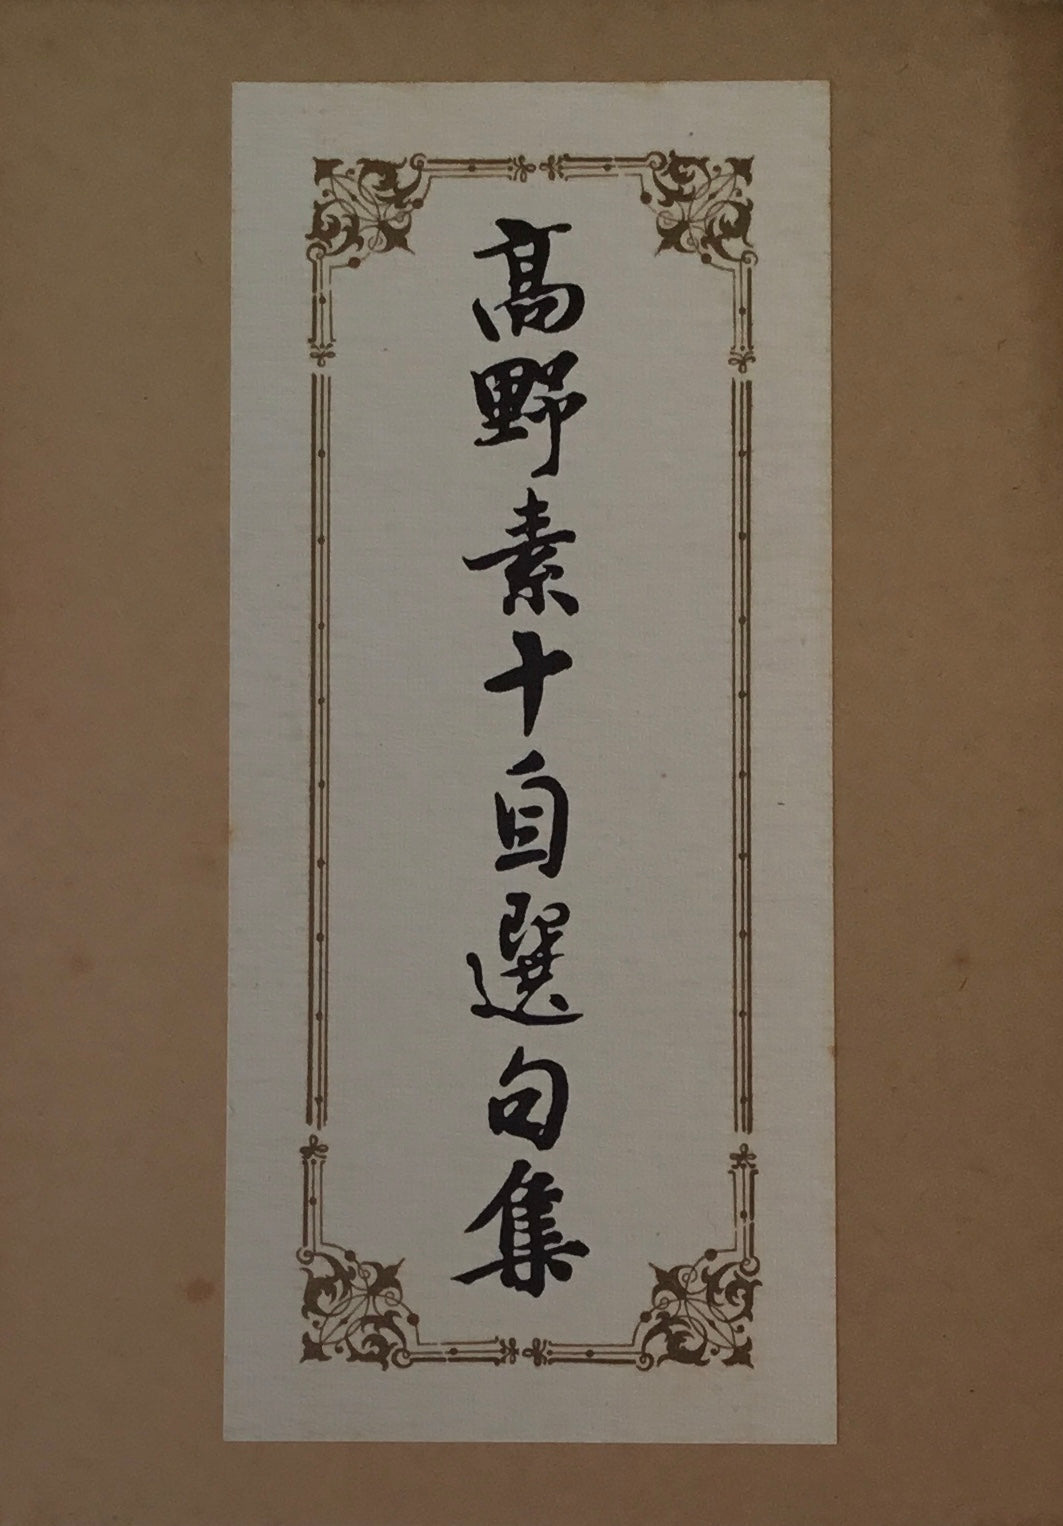 高野素十自選句集